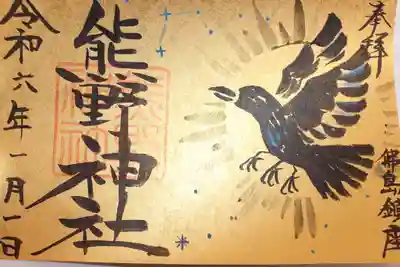 奉拝
島鎮座
熊野神社
令和六年一月一日